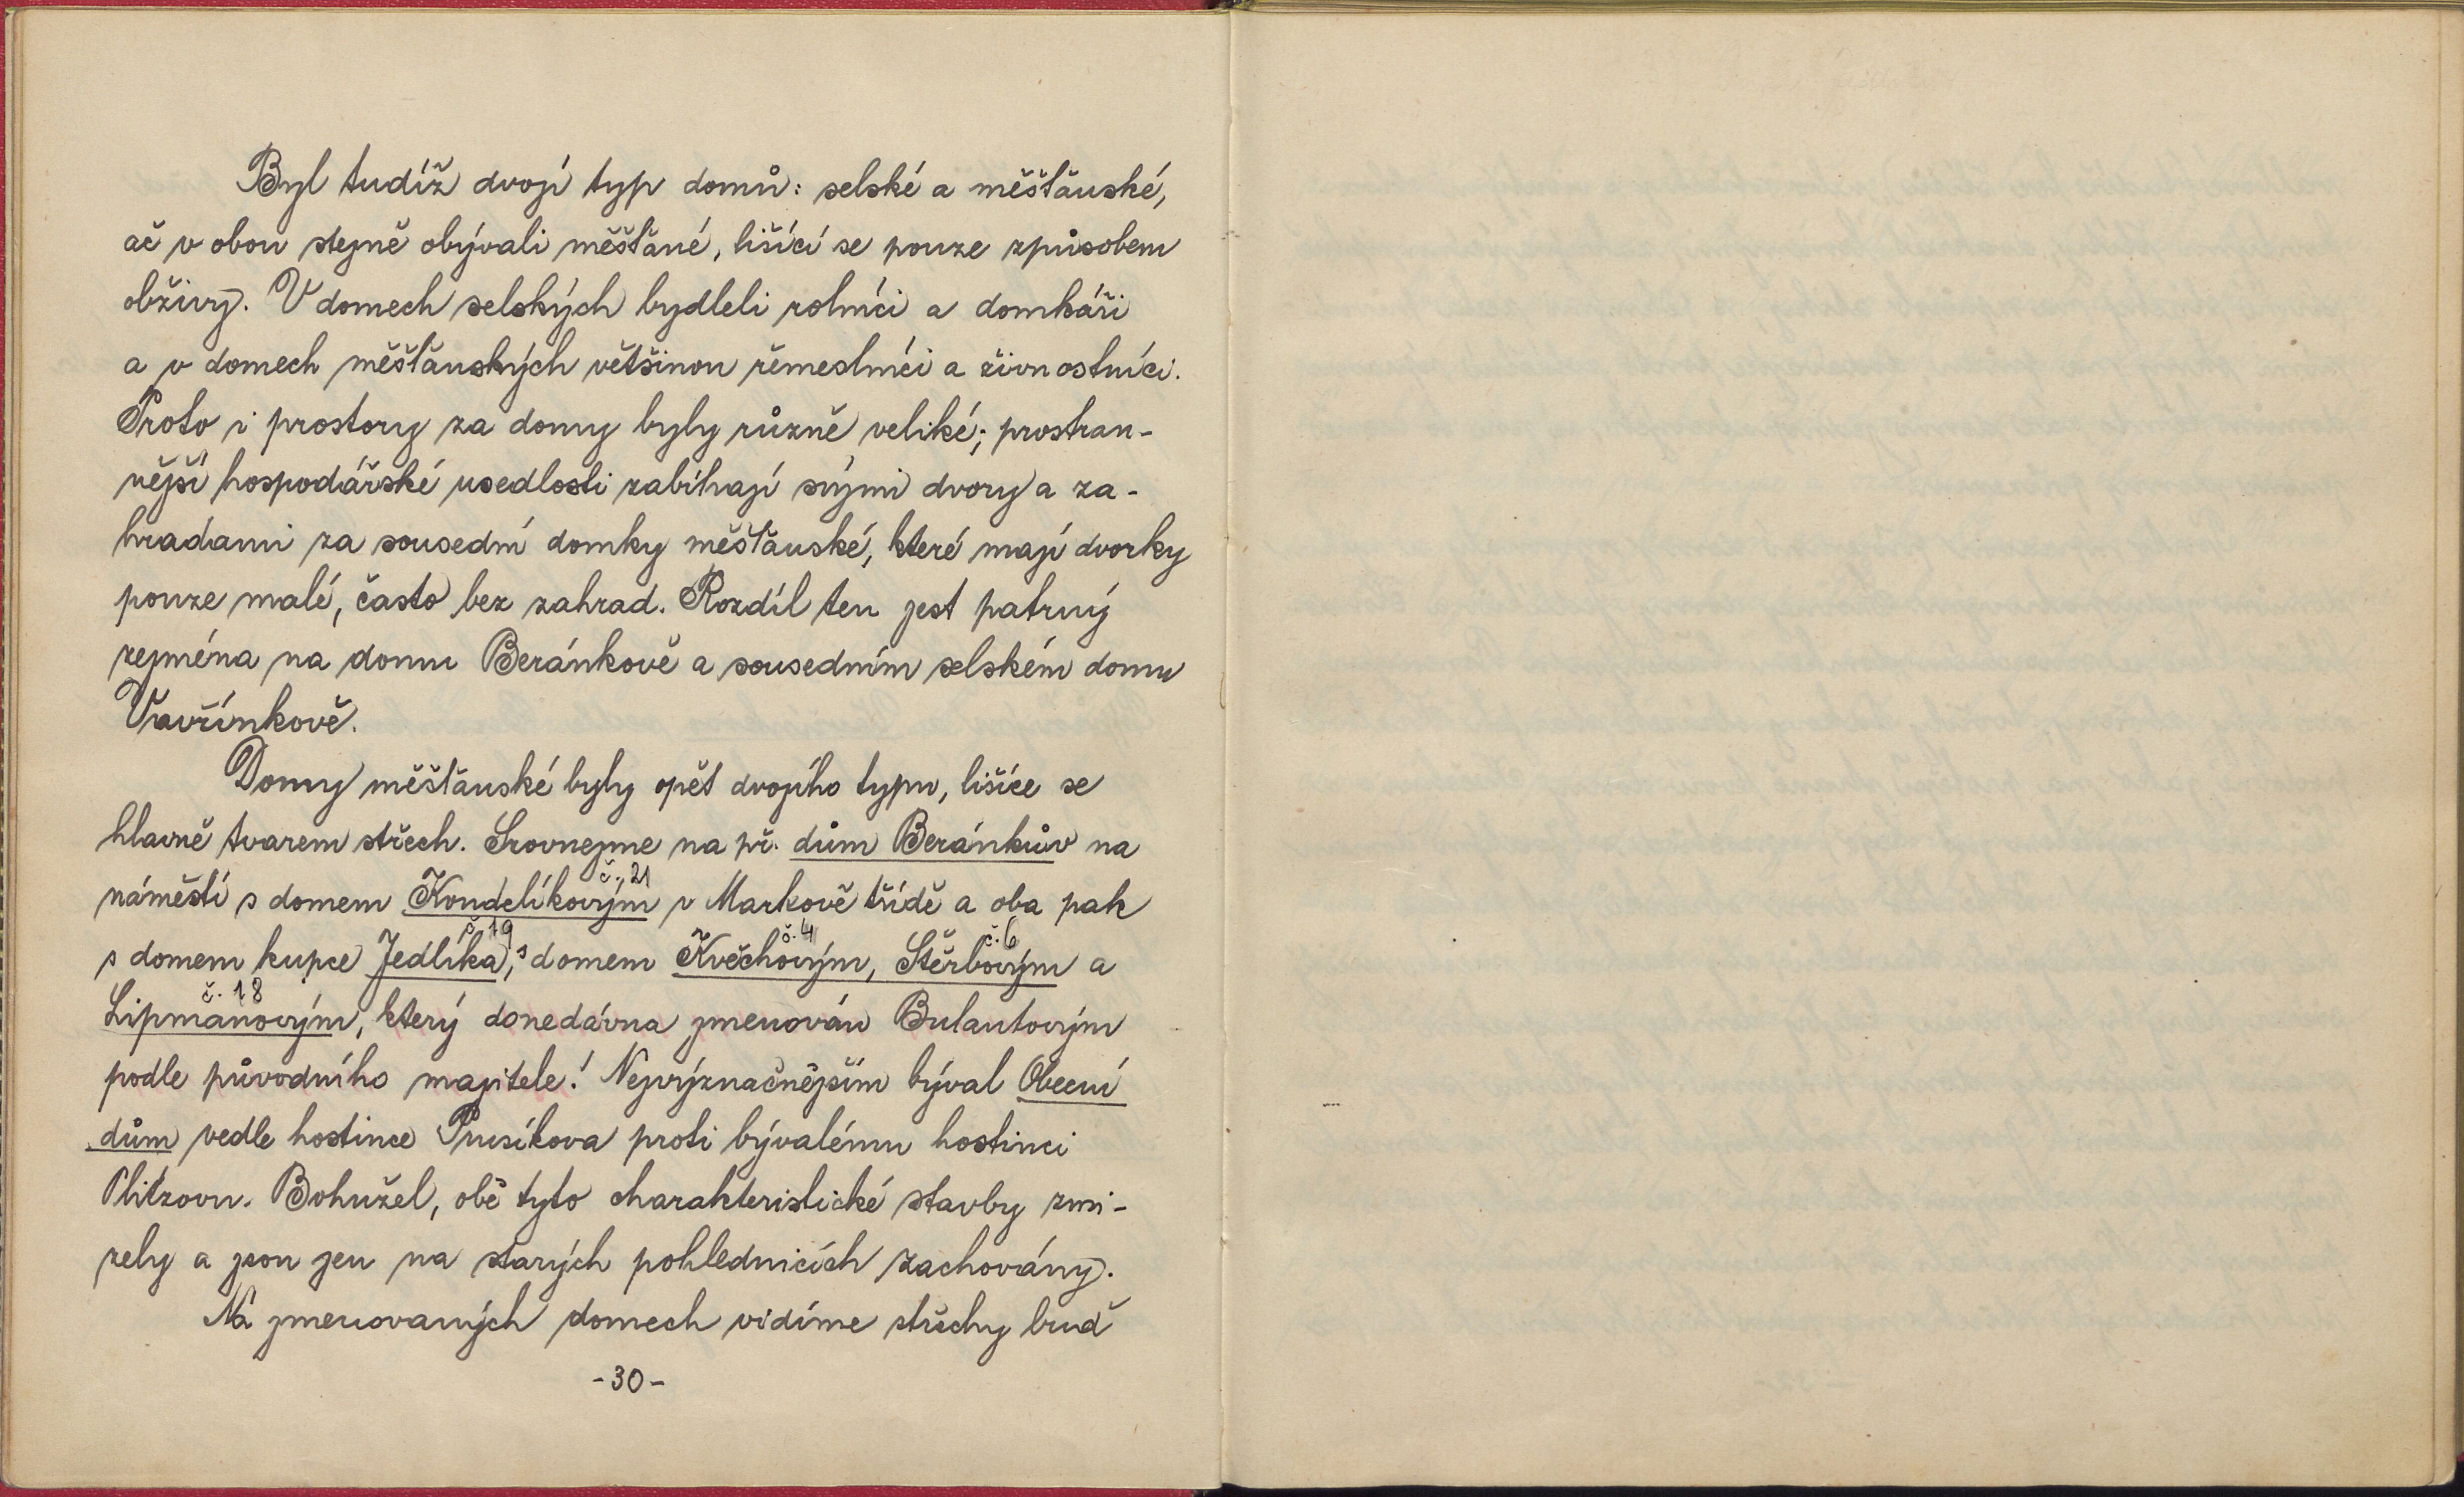 Byl tudíž dvojí typ domů: selské a měšťanské,
ač v obou stejně obývali měšťané, lišící se pouze způsobem
obživy. V domech selských bydleli rolníci a domkáři
a v domech měšťanských většinou řemeslníci a živnostníci.
Proto i prostory za domy byly různě veliké; prostran-
nější hospodářské usedlosti zabíhají svými dvory a za-
hradami za sousední domky měšťanské, které mají dvorky
pouze malé, často bez zahrad. Rozdíl ten jest patrný
zejména na domu Beránkově a sousedním selském domu
Vavřínkově.
Domy měšťanské byly opět dvojího typu, lišíce se
hlavně tvarem střech. Srovnejme na př. dům Beránkův na
č. 21
náměstí s domem Kondelíkovým v Markově třídě a oba pak
č. 19 č. 4 č. 6
s domem kupce Jedlíka, s domem Kvěchovým, Štěrbovým a
č. 18
Lipmanovým, který donedávna jmenován Bulantovým
podle původního majitele! Nejvýznačnějším býval Obecní
dům vedle hostince Pusíkova proti bývalému hostinci
Plitzovu. Bohužel, obě tyto charakteristické stavby zmi-
zely a jsou jen na starých pohlednicích zachovány.
Na jmenovaných domech vidíme střechy buď
-30-